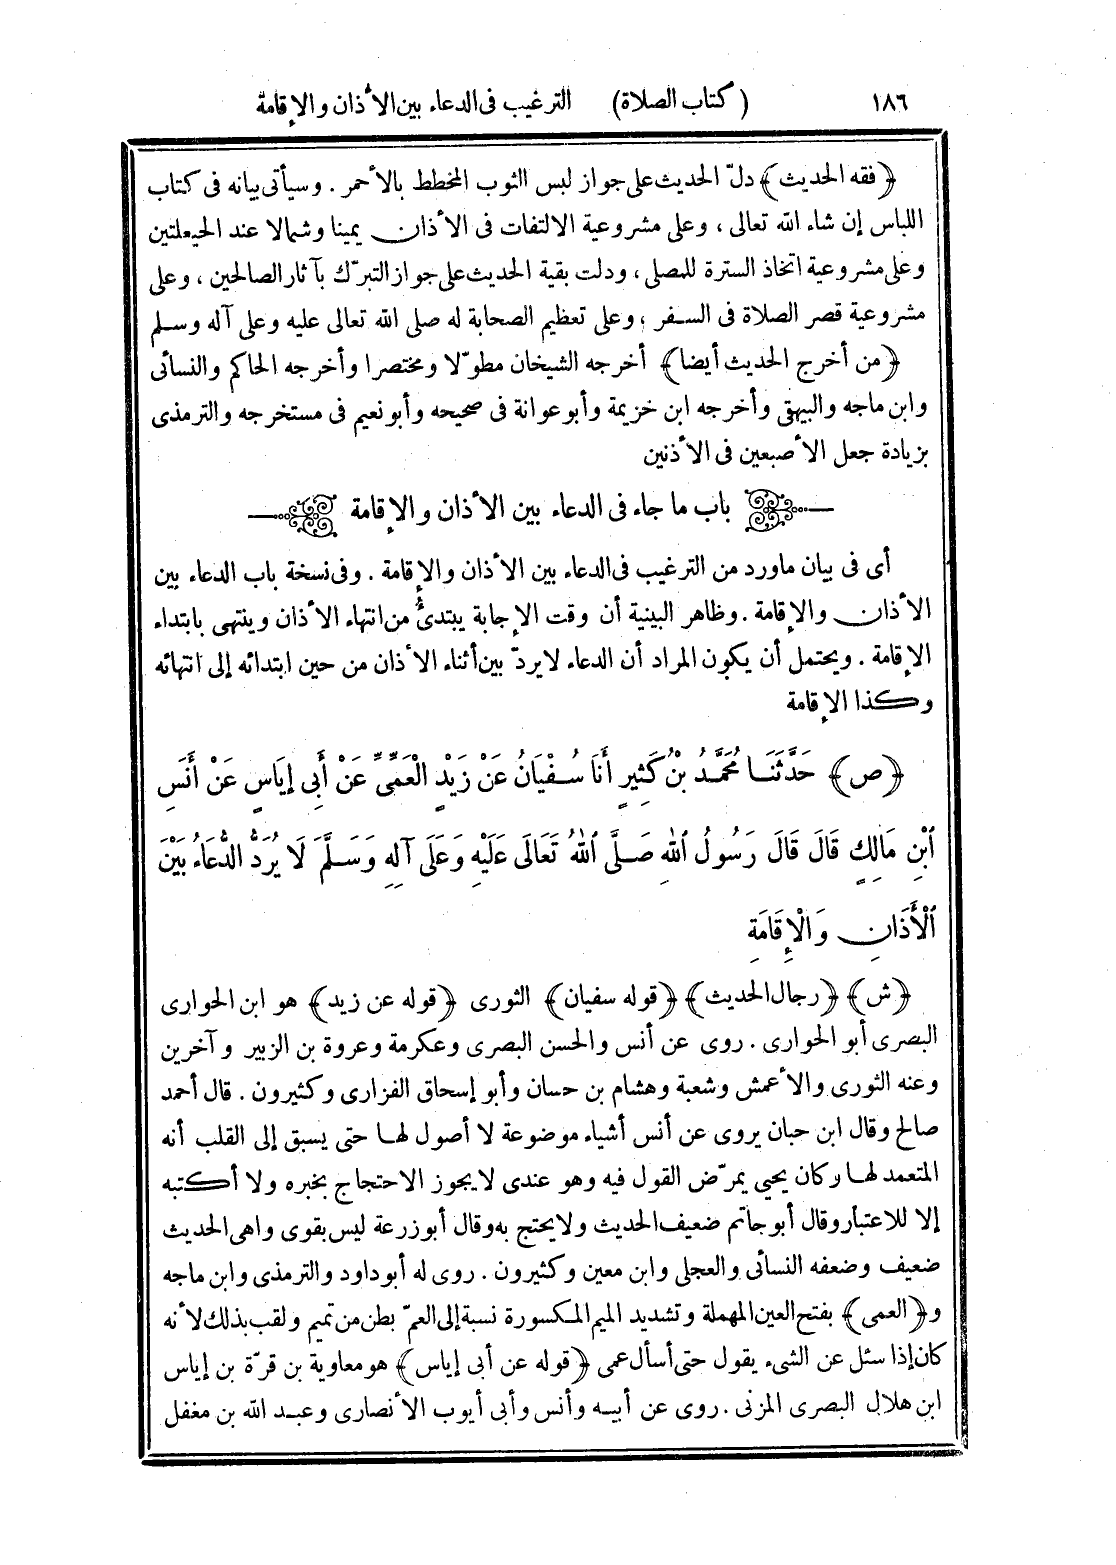 ١٨٦ (كتاب الصلاة) الترغيب فى الدعاء بين الأذان والإقامة
﴿فقه الحديث﴾ دلّ الحديث على جواز لبس الثوب المخطط بالأحمر . وسيأتى بيانه فى كتاب
اللباس إن شاء الله تعالى ، وعلى مشروعية الالتفات فى الأذان يمينا وشمالا عند الحيعلتين
وعلى مشروعية اتخاذ السترة للمصلى ، ودلت بقية الحديث على جواز التبرّك بآثار الصالحين ، وعلى
مشروعية قصر الصلاة فى السفر ، وعلى تعظيم الصحابة له صلى الله تعالى عليه وعلى آله وسلم
﴿من أخرج الحديث أيضا﴾ أخرجه الشيخان مطوّلا ومختصرا وأخرجه الحاكم والنسائى
وابن ماجه والبيهقى وأخرجه ابن خزيمة وأبو عوانة فى صحيحه وأبو نعيم فى مستخرجه والترمذى
بزيادة جعل الأصبعين فى الأذنين
باب ما جاء فى الدعاء بين الأذان والإقامة
أى فى بيان ماورد من الترغيب فى الدعاء بين الأذان والإقامة . وفى نسخة باب الدعاء بين
الأذان والإقامة . وظاهر البينية أن وقت الإجابة يبتدئ من انتهاء الأذان وينتهى بابتداء
الإقامة . ويحتمل أن يكون المراد أن الدعاء لا يردّ بين أثناء الأذان من حين ابتدائه إلى انتهائه
وكذا الإقامة
﴿ص﴾ حَدَّثَنَا مُحَمَّدُ بْنُ كَثِيرٍ أَنَا سُفْيَانُ عَنْ زَيْدٍ الْعَمِّىِّ عَنْ أَبِى إِيَاسٍ عَنْ أَنَسِ
ٱبْنِ مَالِكٍ قَالَ قَالَ رَسُولُ ٱللهِ صَلَّى ٱللهُ تَعَالَى عَلَيْهِ وَعَلَى آلِهِ وَسَلَّمَ لَا يُرَدُّ الدُّعَاءُ بَيْنَ
ٱلْأَذَانِ وَالْإِقَامَةِ
﴿ش﴾ ﴿رجال الحديث﴾ ﴿قوله سفيان﴾ الثورى ﴿قوله عن زيد﴾ هو ابن الحوارى
البصرى أبو الحوارى . روى عن أنس والحسن البصرى وعكرمة وعروة بن الزبير وآخرين
وعنه الثورى والأعمش وشعبة وهشام بن حسان وأبو إسحاق الفزارى وكثيرون . قال أحمد
صالح وقال ابن حبان يروى عن أنس أشياء موضوعة لا أصول لها حتى يسبق إلى القلب أنه
المتعمد لها وكان يحيى يمرّض القول فيه وهو عندى لا يجوز الاحتجاج بخبره ولا أكتبه
إلا للاعتبار وقال أبو حاتم ضعيف الحديث ولا يحتج به وقال أبو زرعة ليس بقوى واهى الحديث
ضعيف وضعفه النسائى والعجلى وابن معين وكثيرون . روى له أبو داود والترمذى وابن ماجه
و﴿العمى﴾ بفتح العين المهملة وتشديد الميم المكسورة نسبة إلى العمّ بطن من تميم ولقب بذلك لأنه
كان إذا سئل عن الشىء يقول حتى أسأل عمى ﴿قوله عن أبى إياس﴾ هو معاوية بن قرّة بن إياس
ابن هلال البصرى المزنى . روى عن أبيه وأنس وأبى أيوب الأنصارى وعبد الله بن مغفل